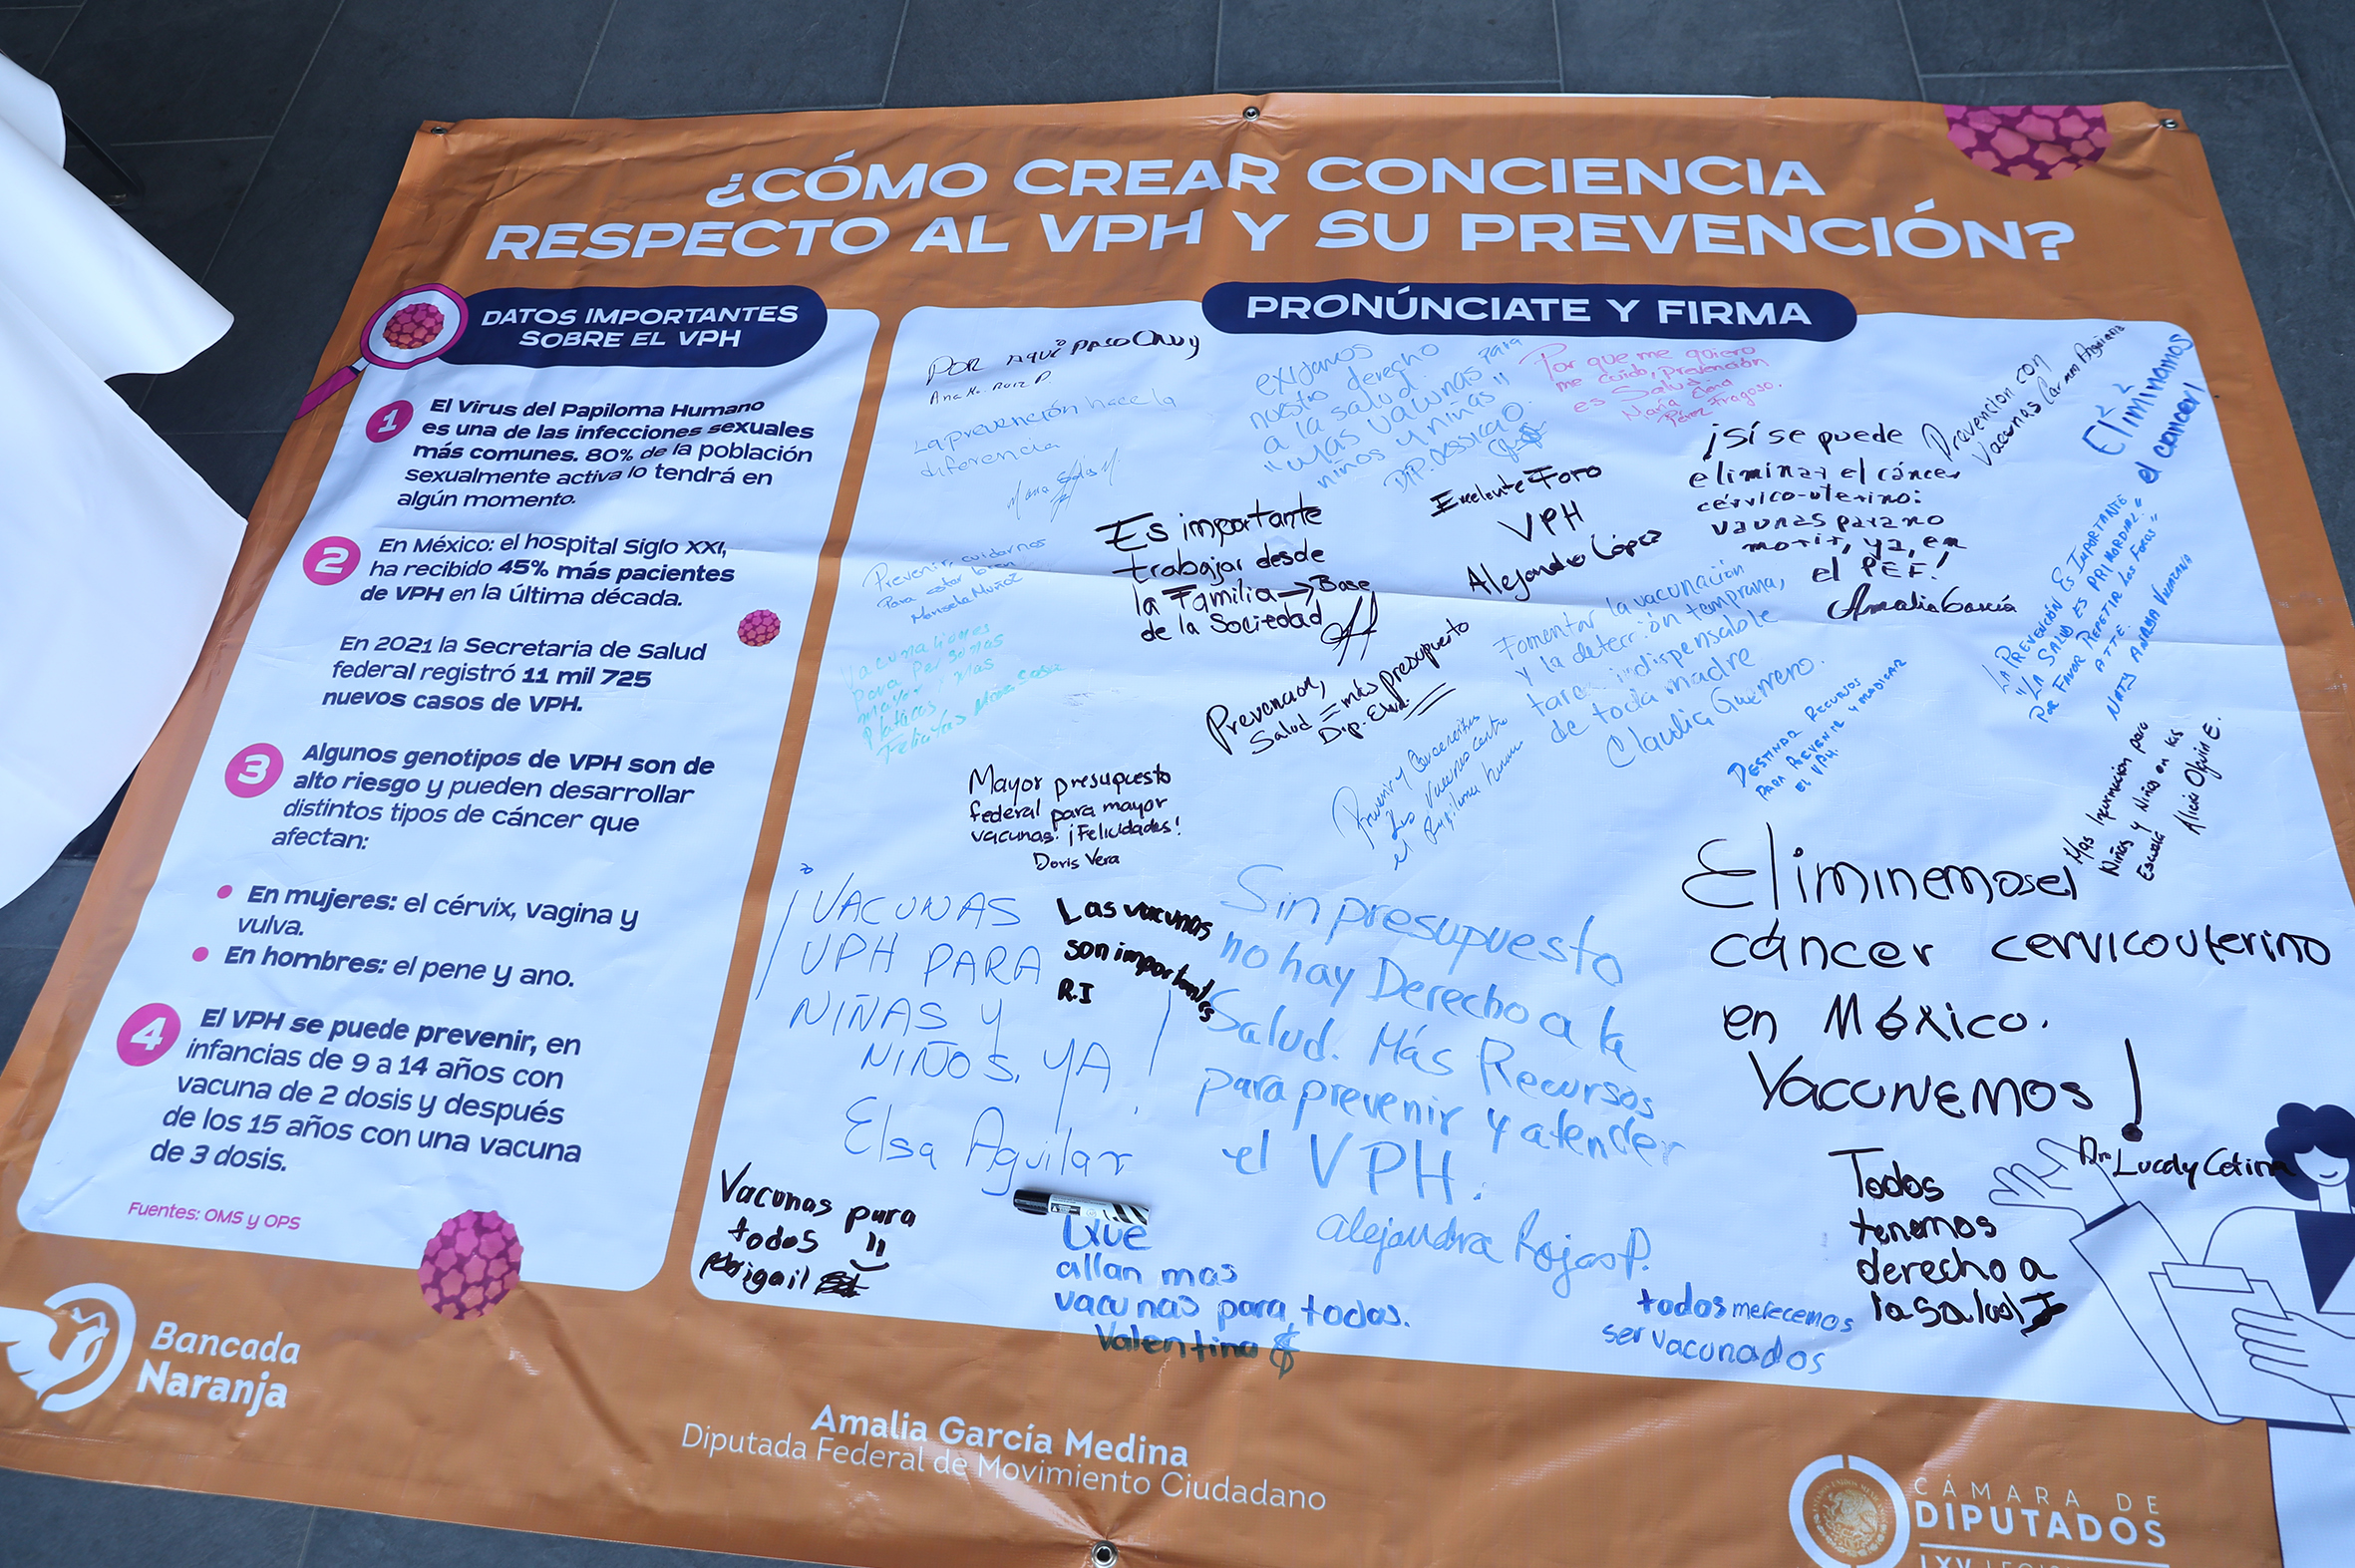 ¿CÓMO CREAR CONCIENCIA
RESPECTO AL VPH Y SU PREVENCIÓN?
DATOS IMPORTANTES
SOBRE EL VPH
1
El Virus del Papiloma Humano
es una de las infecciones sexuales
más comunes. 80% de la población
sexualmente activa lo tendrá en
algún momento.
2
En México: el hospital Siglo XXI,
ha recibido 45% más pacientes
de VPH en la última década.
En 2021 la Secretaria de Salud
federal registró 11 mil 725
nuevos casos de VPH.
3
Algunos genotipos de VPH son de
alto riesgo y pueden desarrollar
distintos tipos de cáncer que
afectan:
En mujeres: el cérvix, vagina y
vulva.
En hombres: el pene y ano.
4
El VPH se puede prevenir, en
infancias de 9 a 14 años con
vacuna de 2 dosis y después
de los 15 años con una vacuna
de 3 dosis.
Fuentes: OMS y OPS
PRONÚNCIATE Y FIRMA
POR AQUÍ PASO
Ana M. RUIZ P.
La prevención hace la
diferencia
exijamos
nuestro derecho
a la salud.
"Más vacunas para
niños y niñas"
Por que me quiero
me cuido, prevención
es Salud.
María Elena
Pérez Fragoso.
Prevencion con
Vacunas Carmen Anguiana
Eliminamos
el cancer!
¡Sí se puede
eliminar el cáncer
cérvico-uterino:
vacunas para no
morir, ya, en
el PEF!
Amalia García
Excelente Foro
VPH
Alejandro López
Es importante
trabajar desde
la Familia → Base
de la Sociedad
Prevenir, cuidarnos
Para estar bien
Marisela Muñoz
Vacunaciones
para personas
mayor y mas
platicas
Felicitas
Prevencion,
Salud = más presupuesto
Dip.
Fomentar la vacunación
y la detección temprana,
tarea indispensable
de toda madre
Claudia Guerrero.
LA PREVENCIÓN ES IMPORTANTE
"LA SALUD ES PRIMORDIAL"
POR FAVOR REPETIR LOS FOROS"
ATTE.
NATY
DESTINAR RECURSOS
PARA PREVENIR Y
EL VPH.
Mas Informacion para
Niñas y Niños en las
Escuela
Alicia Olguin E.
Prevenir y
las vacunas contra
el Papiloma humano
Mayor presupuesto
federal para mayor
vacunas. ¡Felicidades!
Doris Vera
¡VACUNAS
VPH PARA
NIÑAS Y
NIÑOS, YA!
Elsa Aguilar
Las vacunas
son importantes
R.I
Sin presupuesto
no hay Derecho a la
Salud. Más Recursos
para prevenir y atender
el VPH.
Alejandra Rojas P.
Eliminemos el
cáncer cervicouterino
en México.
Vacunemos!
Dra Lucely Cetina
Todos
tenemos
derecho a
la salud
Vacunas para
todos
Que
allan mas
vacunas para todas.
Valentina
todos merecemos
ser vacunados
Bancada
Naranja
Amalia García Medina
Diputada Federal de Movimiento Ciudadano
CÁMARA DE
DIPUTADOS